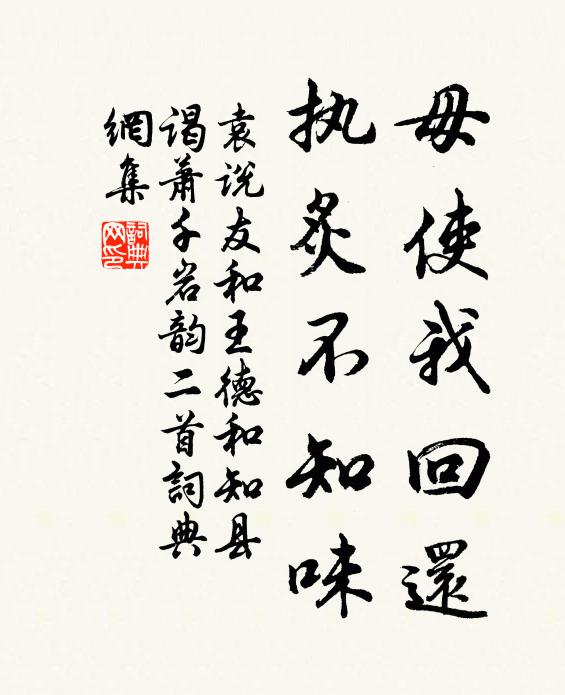 毋使我回還
执炙不知味
袁说友和王德和知县
谒萧千岩韵二首詞典
網集
詞典
网印